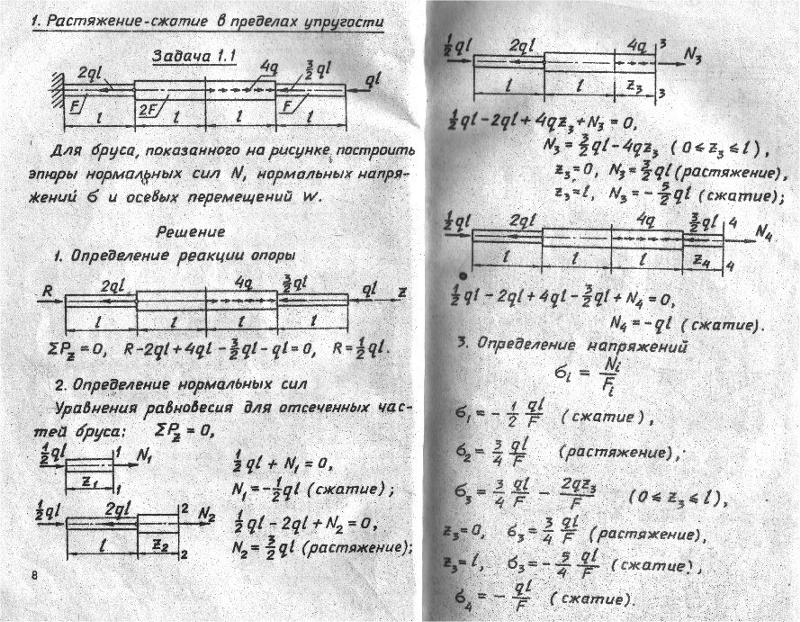 1. Растяжение-сжатие в пределах упругости
Задача 1.1
2ql 4q 3/2 ql ql
F 2F F
l l l l
Для бруса, показанного на рисунке, построить
эпюры нормальных сил N, нормальных напря-
жений σ и осевых перемещений w.
Решение
1. Определение реакции опоры
R 2ql 4q 3/2 ql ql z
l l l l
ΣP_z = 0, R-2ql+4ql-3/2 ql-ql=0, R=1/2 ql.
2. Определение нормальных сил
Уравнения равновесия для отсеченных час-
тей бруса: ΣP_z = 0,
1/2 ql 1 N₁
z₁ 1
1/2 ql + N₁ = 0,
N₁=-1/2 ql (сжатие);
1/2 ql 2ql 2 N₂
l z₂ 2
1/2 ql - 2ql + N₂ = 0,
N₂ = 3/2 ql (растяжение);
8
1/2 ql 2ql 4q 3 N₃
l l z₃ 3
1/2 ql-2ql+4qz₃+N₃ = 0,
N₃ = 3/2 ql-4qz₃ (0≤z₃≤l),
z₃=0, N₃=3/2 ql (растяжение),
z₃=l, N₃=-5/2 ql (сжатие);
1/2 ql 2ql 4q 3/2 ql 4 N₄
l l l z₄ 4
1/2 ql-2ql+4ql-3/2 ql+N₄=0,
N₄=-ql (сжатие).
3. Определение напряжений
σ_i = N_i/F_i
σ₁=-1/2 ql/F (сжатие),
σ₂=3/4 ql/F (растяжение),
σ₃=3/4 ql/F - 2qz₃/F (0≤z₃≤l),
z₃=0, σ₃=3/4 ql/F (растяжение),
z₃=l, σ₃=-5/4 ql/F (сжатие),
σ₄=-ql/F (сжатие).